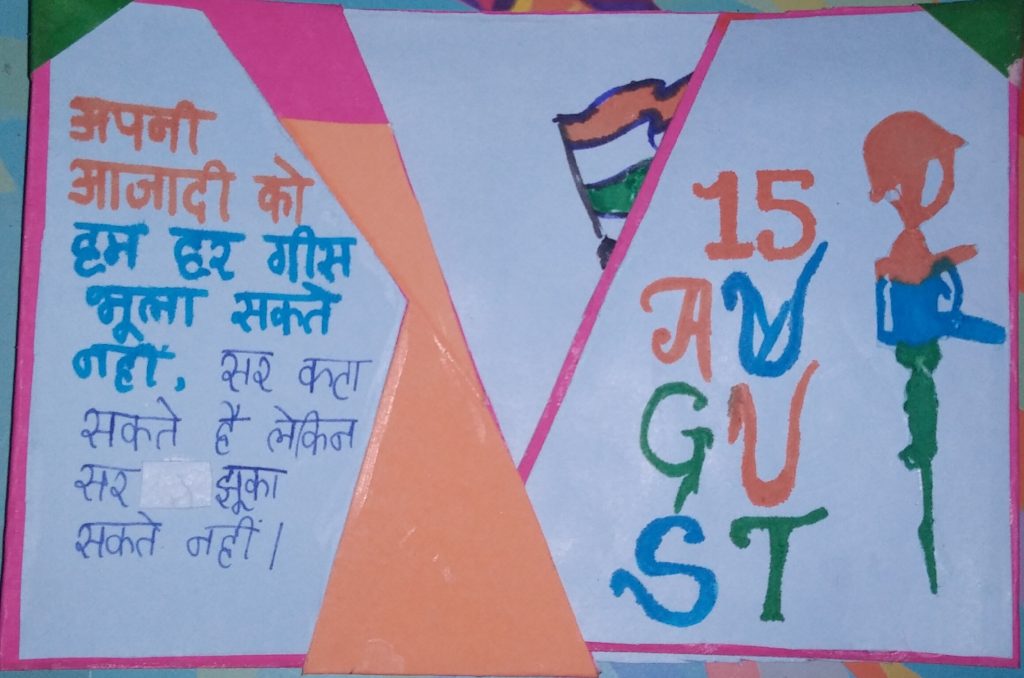 अपनी
आजादी को
हम हर गीस
भूला सकते
नहीं, सर कटा
सकते है लेकिन
सर झूका
सकते नहीं।
15
AU
GU
ST